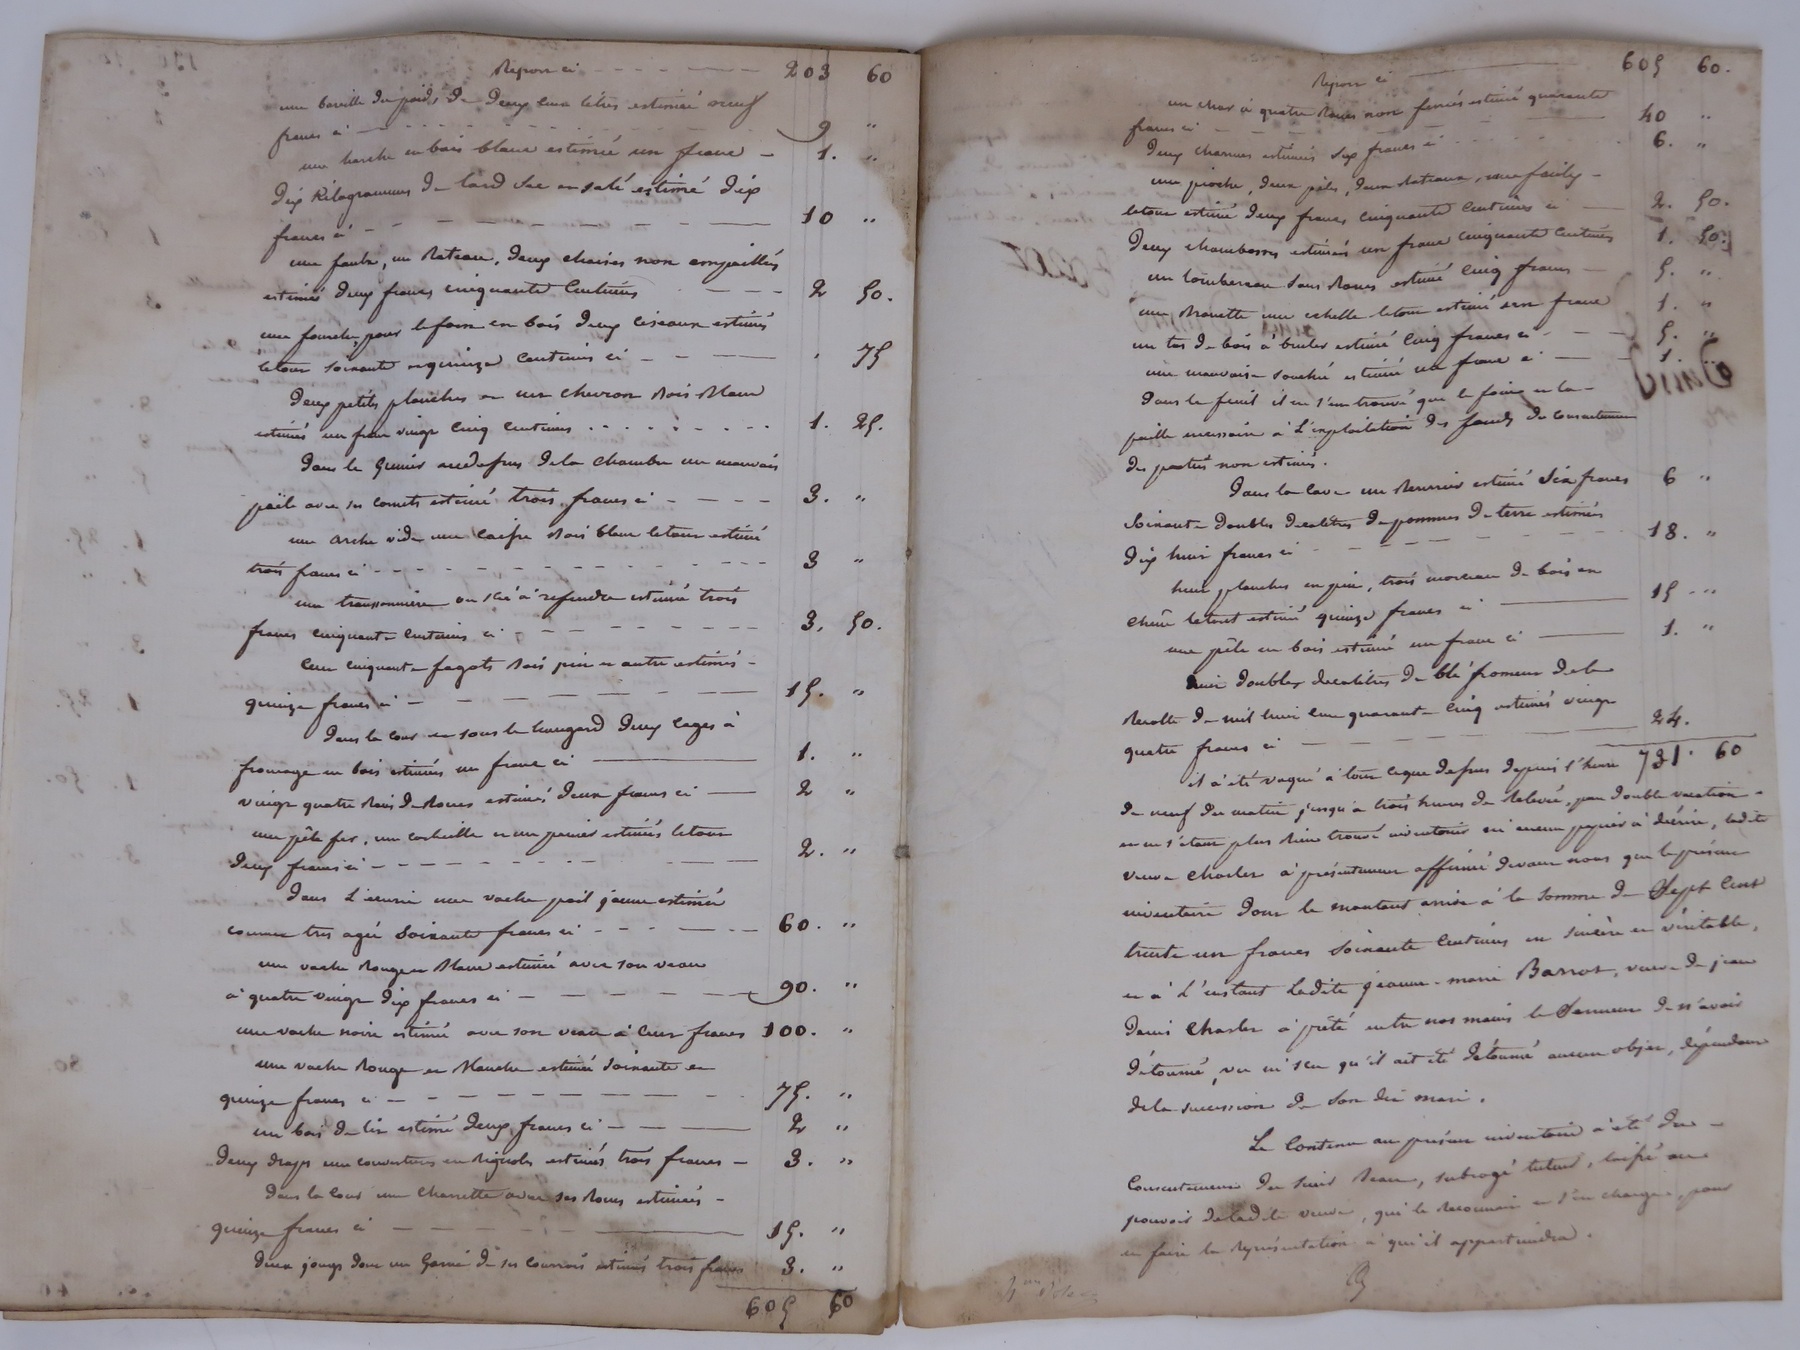 Report ci 203 60
une bareille du poids de deux cent litres estimée neuf
francs ci 9 "
une herche en bois blanc estimée un franc 1. "
Dix Kilogrammes de lard sec en salé estimé dix
francs ci 10 "
une faulx, un Rateau, deux chaises non empaillés
estimés deux francs cinquante Centimes 2 50.
une fourche pour le foin en bois deux ciseaux estimés
letout soixante et quinze centimes ci " 75
Deux petits planches et un chevron bois blanc
estimés un franc vingt cinq centimes 1. 25.
Dans le Grenier audessus de la chambre un mauvais
poële avec ses cornets estimé trois francs ci 3. "
une arche vide une caisse bois blanc letout estimé
trois francs ci 3 "
une ou scie à refendre estimée trois
francs cinquante centimes ci 3. 50.
Cent cinquante fagots bois pin et autre estimés
quinze francs ci 15. "
Dans la cour et sous le hangard deux cages à
fromage en bois estimées un franc ci 1. "
vingt quatre Rais de Roues estimés deux francs ci 2 "
une pêle fer, une corbeille et un panier estimés letout
deux francs ci 2. "
Dans L'écurie une vache poil jaune estimée
comme très agée Soixante francs ci 60. "
une vache Rouge et blanc estimée avec son veau
à quatre vingt dix francs ci 90. "
une vache noire estimée avec son veau à cent francs 100. "
une vache Rouge et blanche estimée soixante et
quinze francs ci 75. "
un bois de lit estimé deux francs ci 2 "
Deux draps une couverture en estimés trois francs 3. "
Dans la cour une charrette avec ses Roues estimées
quinze francs ci 15. "
Deux jougs dont un Garni de ses courroies estimés trois francs 3. "
605 60
Report ci 605 60.
un char à quatre Roues non ferrées estimé quarante
francs ci 40 "
Deux charrues estimées six francs ci 6. "
une pioche, deux pêles, deux Rateaux, une
letout estimé deux francs cinquante centimes ci 2. 50.
Deux estimés un franc cinquante centimes 1. 50.
un tombereau sans Roues estimé cinq francs 5. "
une Brouette une echelle letout estimé un franc 1. "
un tas de bois à bruler estimé cinq francs ci 5. "
une mauvaise estimée un franc ci 1. "
Dans le fenil il ne s'en trouvé que le foin et la
paille nécessaire à L'exploitation des fonds du consentement
des parties non estimés.
Dans la cave un estimé six francs 6 "
Soixante doubles decalitres de pommes de terre estimés
dix huit francs ci 18. "
huit planches en pin, trois morceaux de bois en
chêne letout estimé quinze francs ci 15 "
une pêle en bois estimée un franc ci 1. "
huit doubles decalitres de blé froment de la
Recolte de mil huit cent quarante cinq estimés vingt
quatre francs ci 24.
731. 60
il a été vaqué à tout ceque dessus depuis l'heure
de neuf du matin jusqu'à trois heures de Relevée, par double vacation
et ne s'étant plus Rien trouvé inventorier ni aucun papier à décrire, ladite
veuve Charles à présentement affirmé devant nous que le présent
inventaire dont le montant arrive à la somme de Sept Cent
trente un francs soixante Centimes est sincère et véritable,
et à L'instant Ladite jeanne-marie Barrot, veuve de jean
Denis Charles à prêté entre nos mains le serment de n'avoir
détourné, vu ni scu qu'il ait été détourné aucun objet, dépendant
de la succession de son dit mari.
Le contenu au présent inventaire à été du
consentement du sieur , subrogé tuteur, laissé au
pouvoir de ladite veuve, qui le Reconnait et s'en charge, pour
en faire la Représentation à qui il appartiendra.